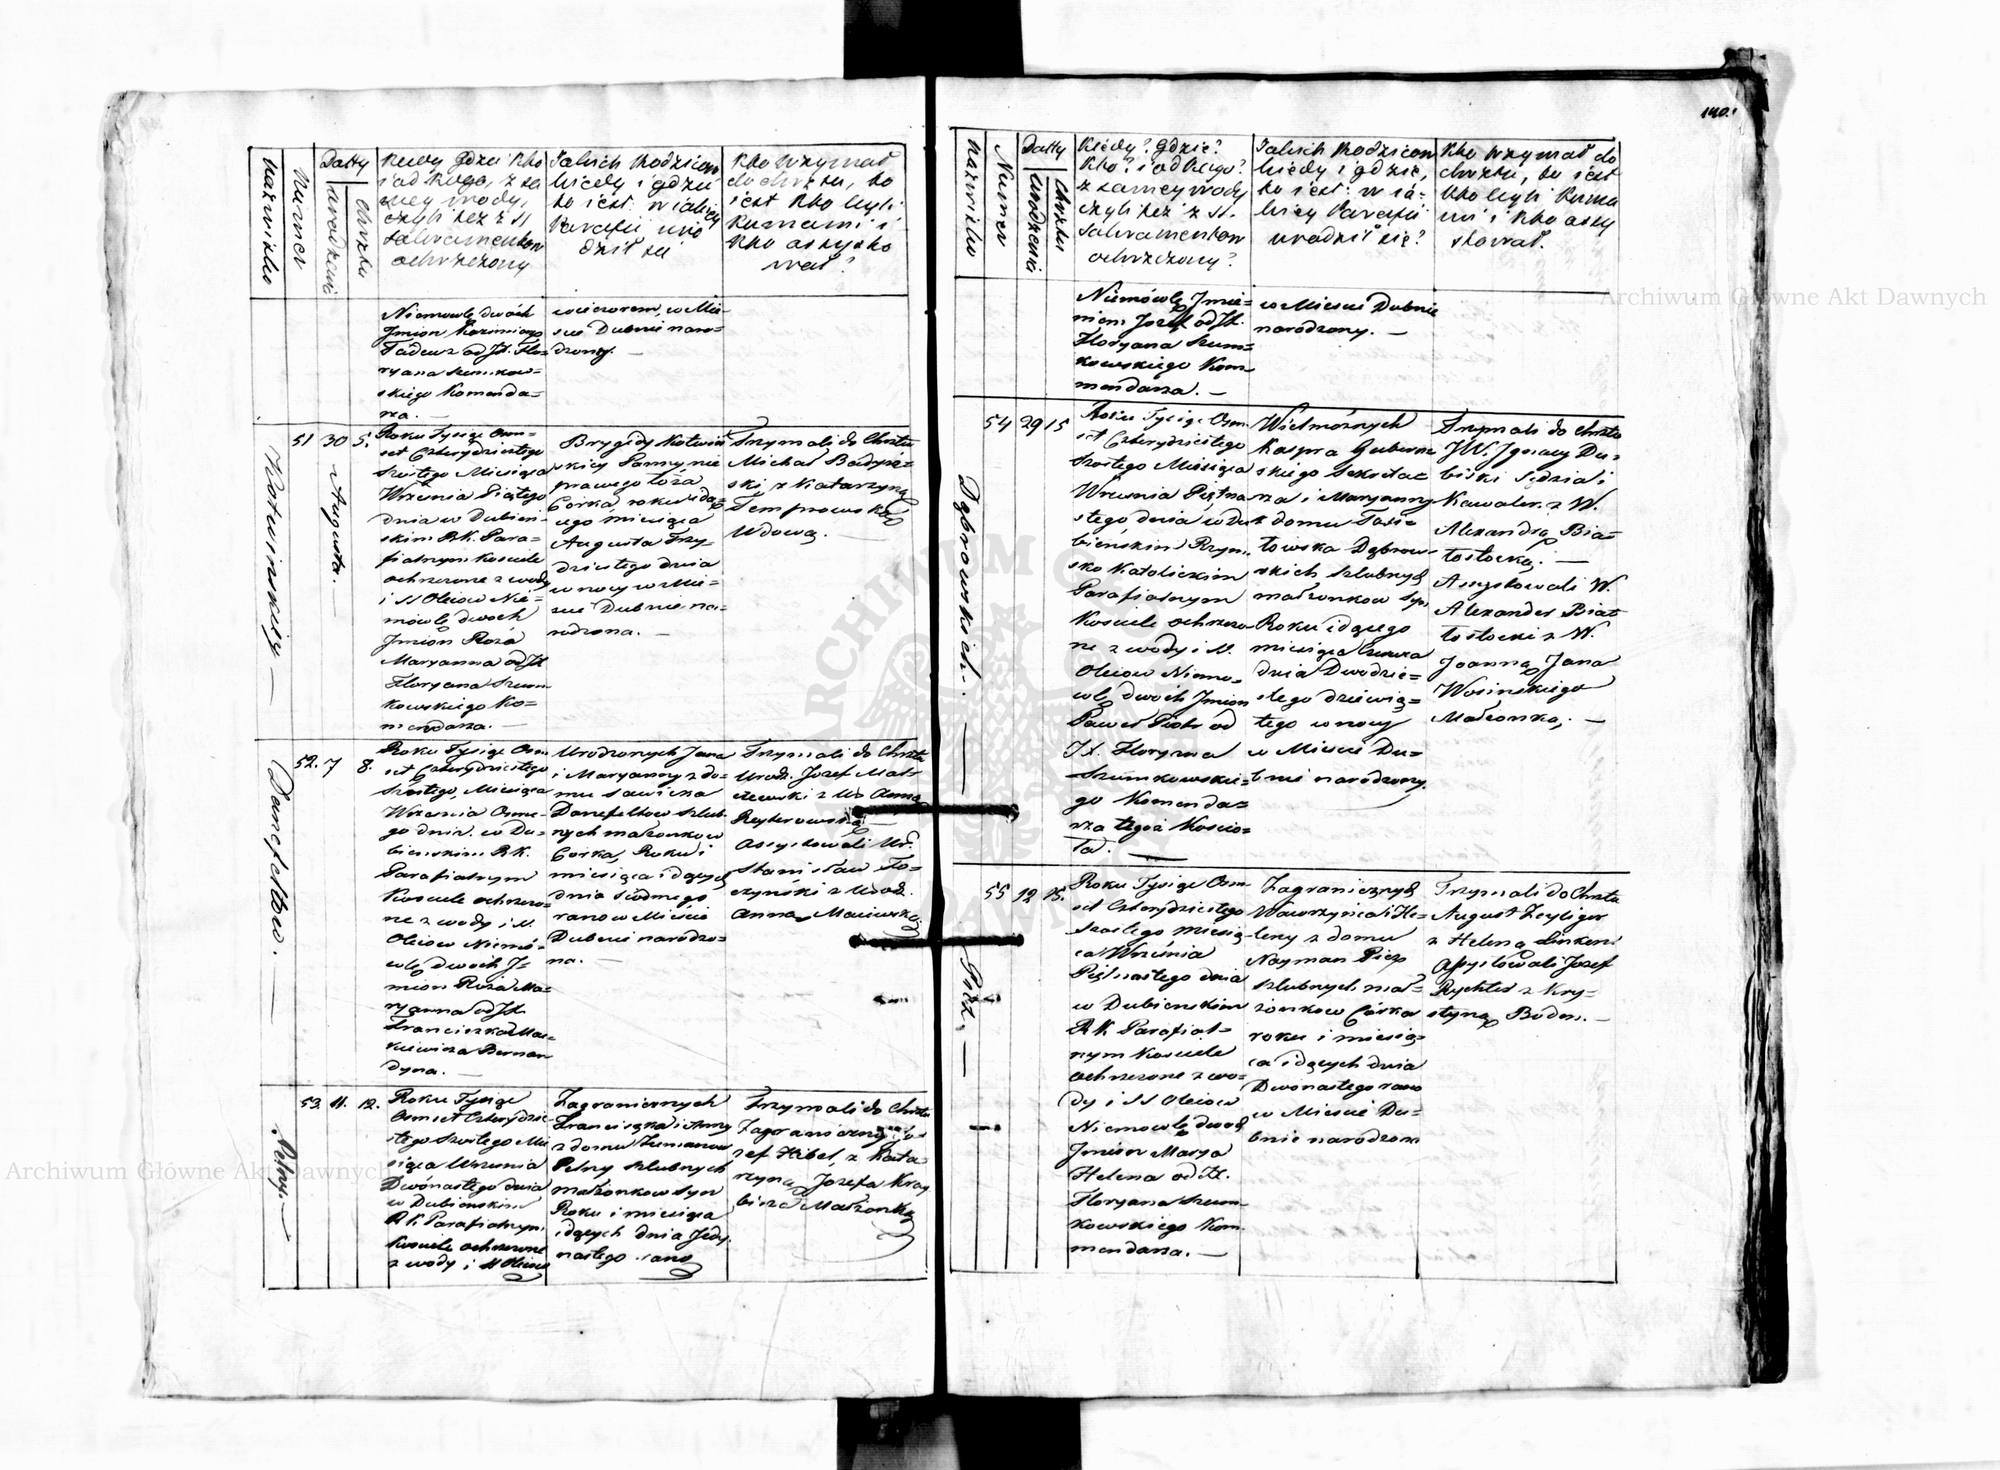 140.
Nazwisko
Numer
Datty
urodzenia
chrztu
Kiedy gdzie kto
i od kogo, z sa
mey wody,
czyli też z SS
Sakramentow
ochrzczony
Jakich Rodzicow
kiedy i gdzie
to iest w iakiey
Parafii uro
dził się
Kto trzymał
do chrztu, to
iest kto byli
Kumami i
kto assysto
wał?
Niemowle dwóch
Jmion Kazimierz
Tadeusz od JX. Flo=
ryana Szumkow=
skiego Komenda=
rza. —
wieczorem, w Mie=
scie Dubnie naro=
dzony. —
Kotwinskiey —
51
30
Augusta. —
5.
Roku Tysiąc Osm=
set Czterydziestego
szostego Miesiąca
Września Piątego
dnia w Dubien=
skim R.K. Para=
fialnym Kosciele
ochrzczone z wody
i SS Oleiow Nie=
mowle dwoch
Jmion Roża
Maryanna od JX
Floryana Szum
kowskiego Ko=
mendarza. —
Brygidy Kotwin
skiey Panny nie
prawego łoża
Corka, roku ida=
cego miesiąca
Augusta Trzy=
dziestego dnia
w nocy w Mie=
scie Dubnie na=
rodzona. —
Trzymali do Chrztu
Michał Badyń=
ski z Katarzyną
Wdową. —
Danefeltow. —
52.
7
8.
Roku Tysiąc Osm
set Czterydziestego
szostego, Miesiąca
Września Osme=
go dnia. w Du=
bienskim R.K.
Parafialnym
Kosciele ochrzczo=
ne z wody i SS.
Oleiow Niemo=
wle dwoch J=
mion Roża Ma=
ryanna od JX.
Franciszka Mac=
kiewicza Bernar
dyna. —
Urodzonych Jana
i Maryanny z do=
mu Sawicka
Danefeltow szlub
nych małżonkow
Corka, Roku i
miesiąca idących
dnia siodmego
rano w Mieście
Dubnie narodzo=
na. —
Trzymali do Chrztu
Urodz. Jozef Mal=
czewski z Ur. Anną
Reyterowską
Assystowali Ur.
Stanisław To=
czyński z Urodz.
Anną Maciewską
Pelny. —
53.
11.
12.
Roku Tysiąc
Osmset Czterydzie=
stego szostego Mie
siąca Września
Dwónastego dnia
w Dubienskim
R.K. Parafialnym
Kosciele ochrzczone
z wody i SS Oleiow
Zagranicznych
Franciszka i Anny
z domu
Pelny szlubnych
małżonkow syn
Roku i miesiąca
idących dnia Jedy
nastego rano
Trzymali do Chrztu
Zagraniczny Jo=
zef Hibel, z Kata=
rzyną Jozefa Kray
bicza Małżonką
Nazwisko
Numer
Datty
Urodzenia
chrztu
Kiedy? gdzie?
Kto? i od kogo?
z samey wody
czyli też z SS.
Sakramentow
ochrzczony?
Jakich Rodzicow
kiedy i gdzie,
to iest: w ia=
kiey Parafii
urodził się?
Kto trzymał do
chrztu, to iest
kto byli Kuma
mi i kto assy
stował.
Niemówle Jmie=
niem Jozef od JX.
Floryana Szum=
kowskiego Kom
mendarza. —
w Miescie Dubnie
narodzony. —
Dąbrowskich. —
54
29
15
Roku Tysiąc Osm
set Czterydziestego
szostego Miesiąca
Września Piętna=
stego, dnia w Du
bienskim Rzym=
sko Katolickim
Parafialnym
Kosciele ochrzczo=
ne z wody i SS.
Oleiow Niemo=
wle dwoch Jmion
Paweł Piotr od
JX. Floryana
Szumkowskie=
go Komenda=
rza tegoż Koscio=
ła. —
Wielmożnych
Kaspra Gubern
skiego Sekreta=
rza i Maryanny
z domu
Dąbrow=
skich szlubnych
małżonkow syn,
Roku idącego
miesiąca Czerwca
dnia Dwudzie=
stego dziewią=
tego w nocy
w Miescie Du=
bnie narodzony.
Trzymali do Chrztu
JW. Jgnacy Du=
biski Sędzia i
Kawaler. z W.
Alexandrą Bia=
łostocką. —
Assystowali W.
Alexander Biał
łostocki z W.
Joanną Jana
Wosinskiego
Małżonką. —
Piez. —
55
12
15.
Roku Tysiąc Osm
set Czterydziestego
szostego miesią=
ca Września
Piętnastego dnia
w Dubienskim
R.K. Parafial=
nym Kosciele
ochrzczone z wo=
dy i SS Oleiow
Niemowle dwoch
Jmion Marya
Helena od JX.
Floryana Szum
kowskiego Kom
mendarza. —
Zagranicznych
Wawrzynca i He=
leny z domu
Nayman Piez
szlubnych mał=
żonkow Corka
roku i miesią=
ca idących dnia
Dwónastego rano
w Miescie Du=
bnie narodzona
Trzymali do Chrztu
August Zeyliger
z Heleną Linkeni
Assystowali Jozef
Rychter z Kry=
styną Boden. —
Archiwum Główne Akt Dawnych
Archiwum Główne Akt Dawnych